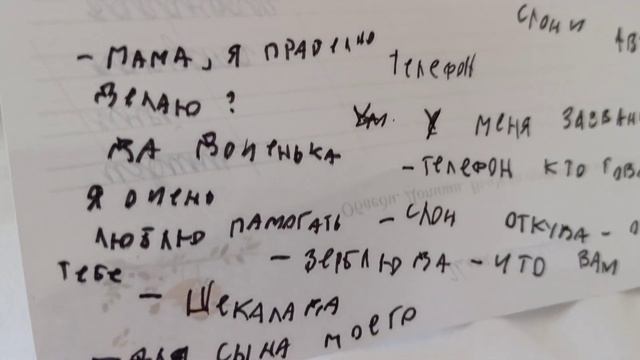 - МАМА, Я ПРАВЕЛНО
ДЕЛАЮ ?
ДА ДОЧЕНЬКА
Я ОЧЕНЬ
ЛЮБЛЮ ПАМОГАТЬ
ТЕБЕ
СЛОН И
ТЕЛЕФОН
У МЕНЯ ЗАЗВАН
- ТЕЛЕФОН КТО ГОВА
- СЛОН ОТКУДА -
- ВЕРБЛЮДА - ЧТО ВАМ
- ШЕКАЛАДА
- ДЛЯ СЫНА МОЕГО